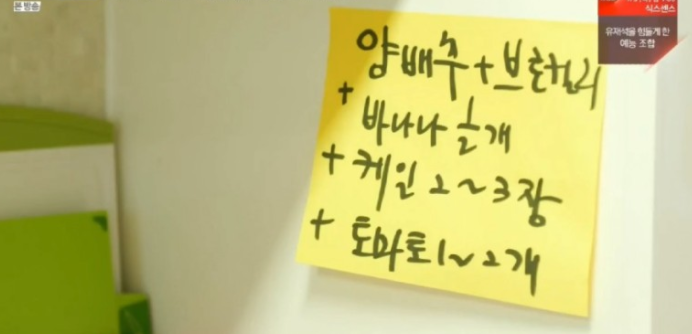 본 방송
식스센스
유재석을 힘들게 한
예능 조합
양배추 + 브로컬리
+ 바나나 ½개
+ 케일 2~3장
+ 토마토 1~2개